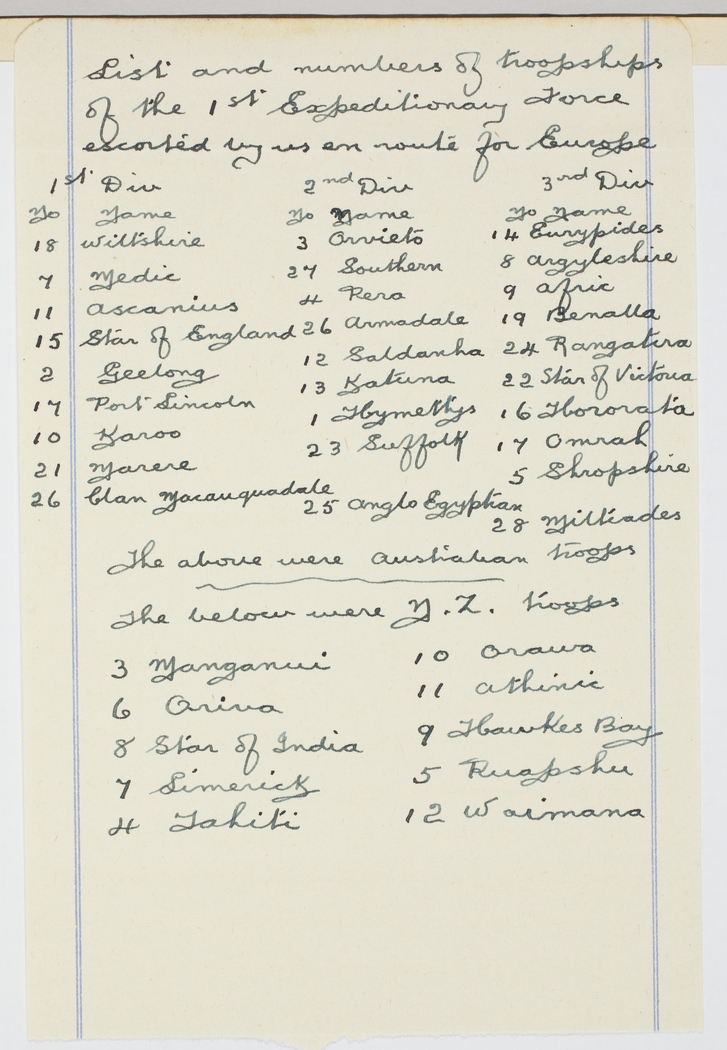 List and numbers of troopships
of the 1st Expeditionary Force
escorted by us en route for Europe
1st Div 2nd Div 3rd Div
No Name No Name No Name
18 Wiltshire 3 Orvieto 14 Eurypides
7 Medic 27 Southern 8 Argyleshire
11 Ascanius 4 Pera 9 Afric
15 Star of England 26 Armadale 19 Benalla
2 Geelong 12 Saldanha 24 Rangatira
17 Port Lincoln 13 Katuna 22 Star of Victoria
10 Karoo 1 Hymettys 16 Hororata
21 Marere 23 Suffolk 17 Omrah
26 Clan Macauquadale 25 Anglo Egyptian 5 Shropshire
28 Miltiades
The above were Australian troops
The below were N.Z. troops
3 Manganui 10 Orawa
6 Oriva 11 Athinic
8 Star of India 9 Hawkes Bay
7 Limerick 5 Ruapshu
4 Tahiti 12 Waimana